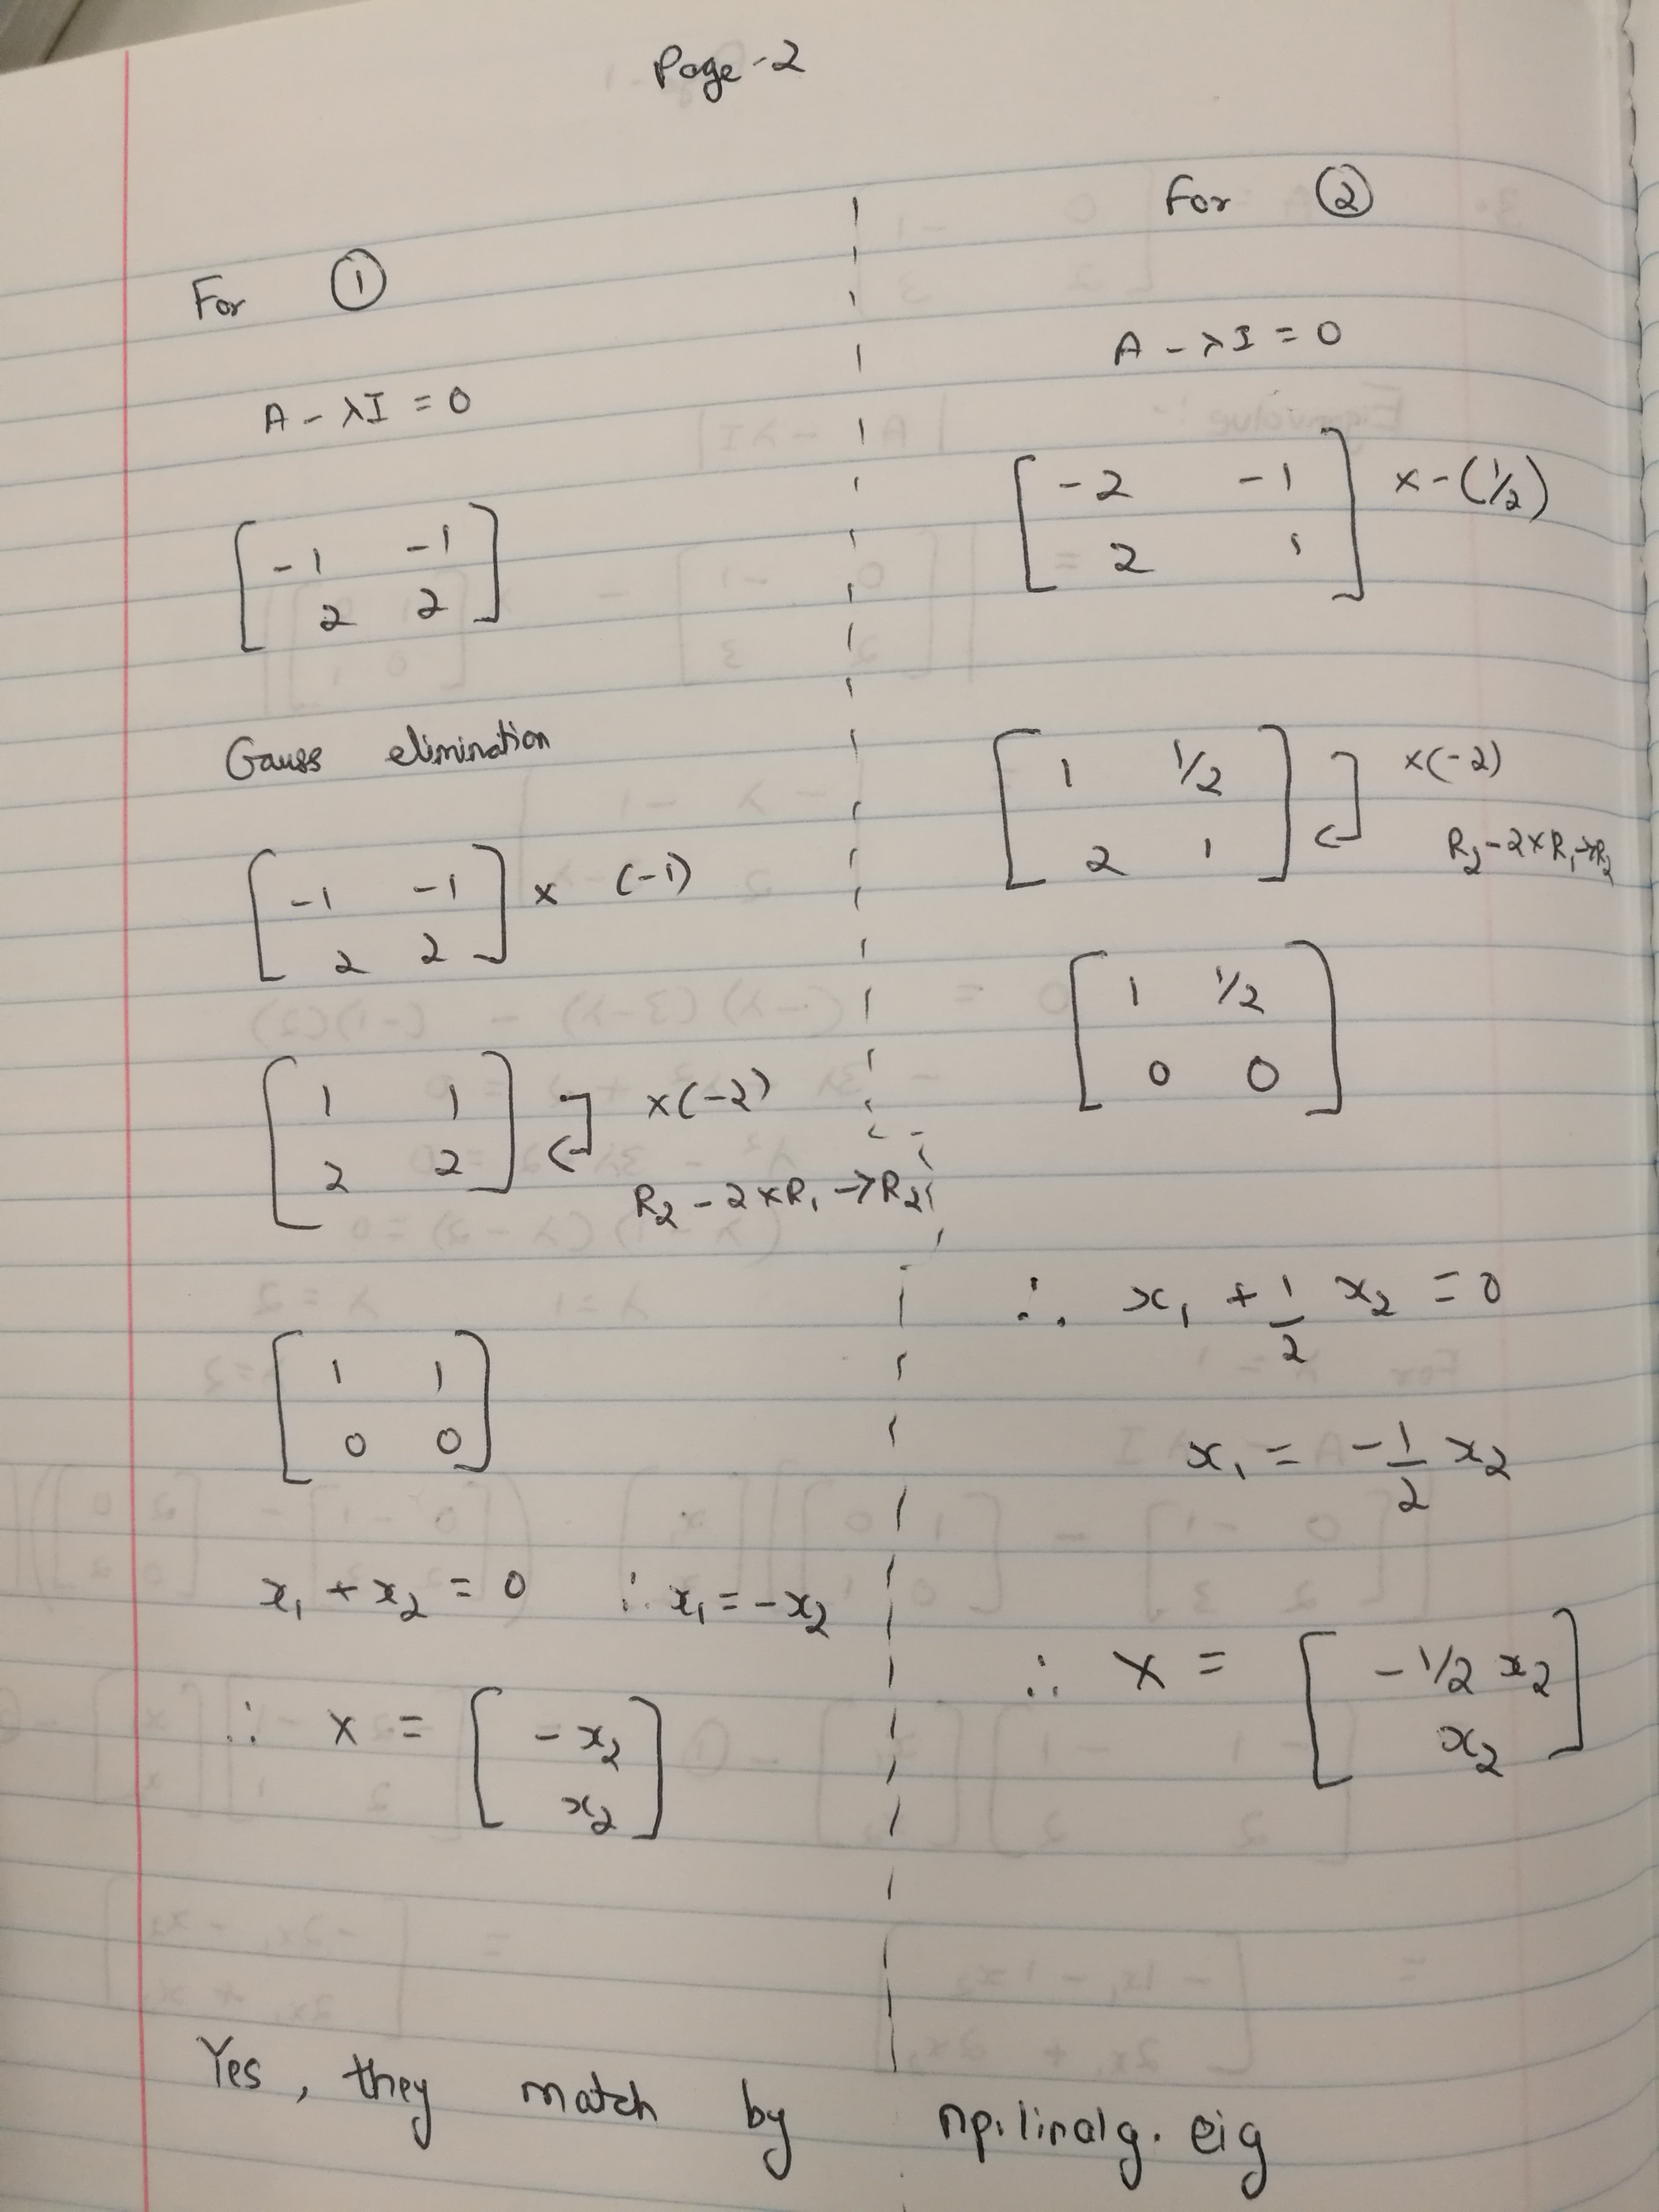 Page-2
For ①
A - λI = 0
[ -1 -1
2 2 ]
Gauss elimination
[ -1 -1
2 2 ] x (-1)
[ 1 1
2 2 ] x(-2)
R2 - 2xR1 → R2
[ 1 1
0 0 ]
x1 + x2 = 0 ∴ x1 = -x2
∴ X = [ -x2
x2 ]
For ②
A - λI = 0
[ -2 -1
2 1 ] x-(1/2)
[ 1 1/2
2 1 ] x(-2)
R2-2xR1→R2
[ 1 1/2
0 0 ]
∴ x1 + 1/2 x2 = 0
x1 = -1/2 x2
∴ X = [ -1/2 x2
x2 ]
Yes, they match by np.linalg.eig